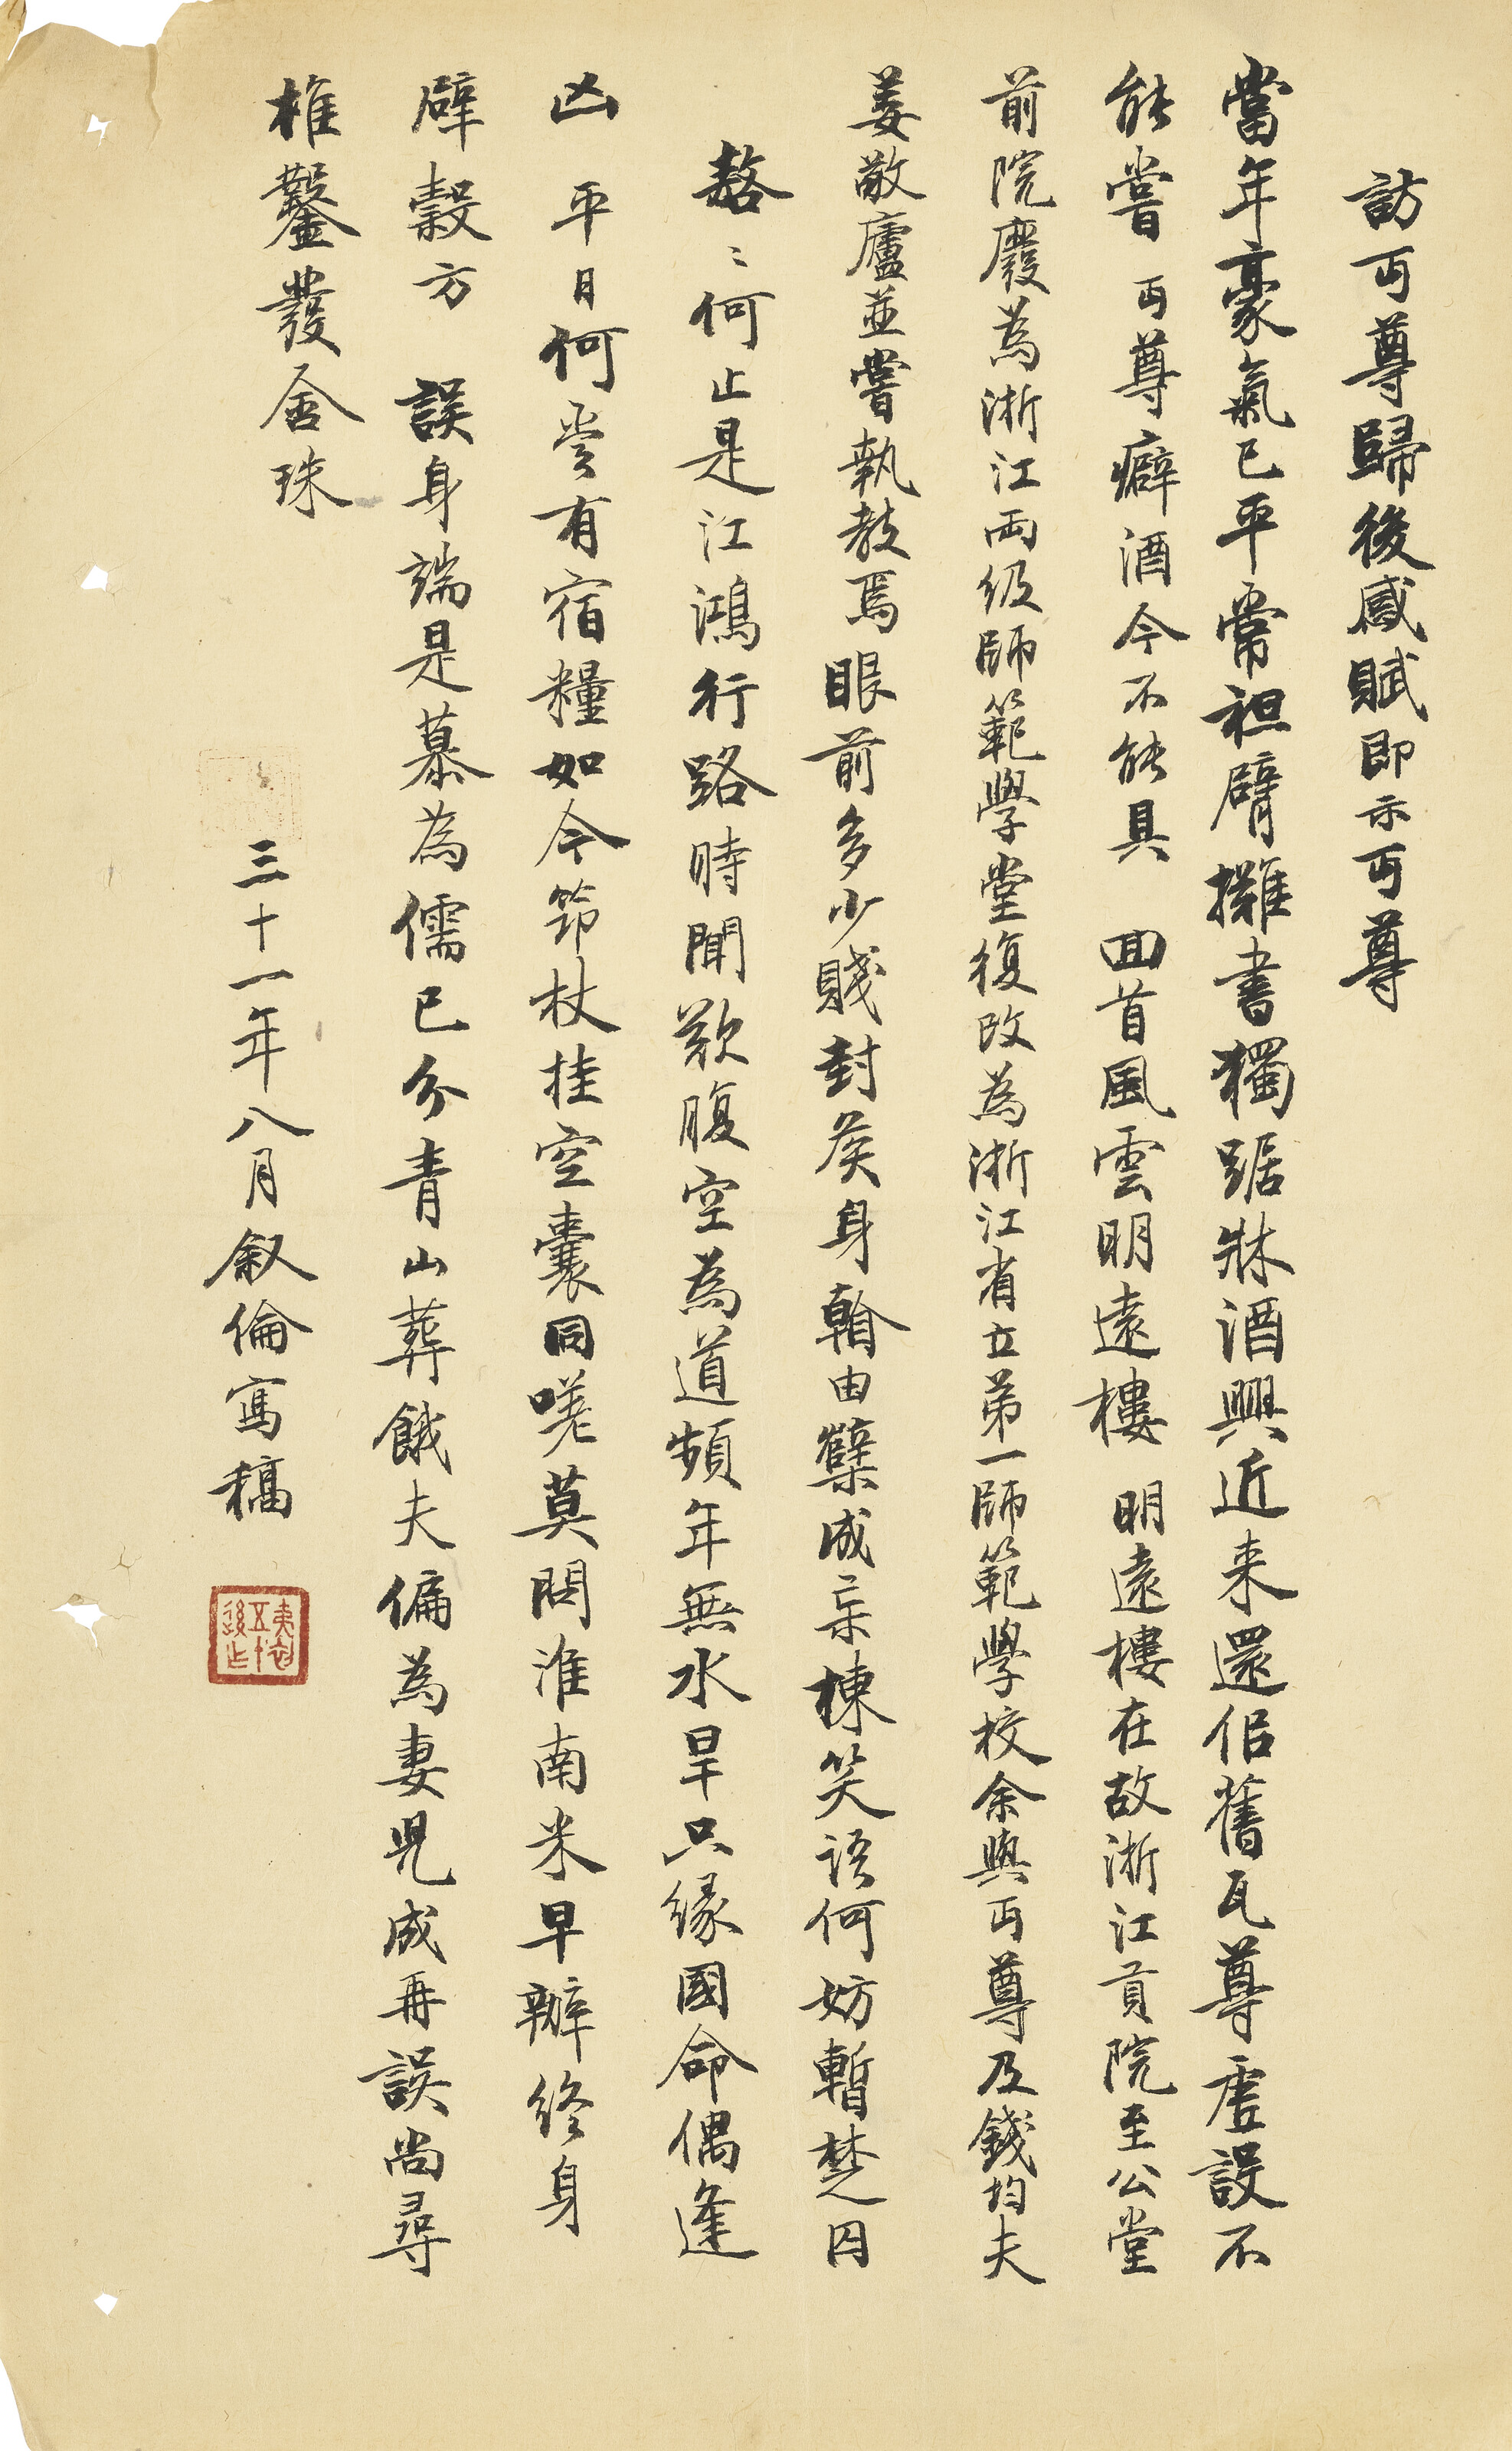 訪丏尊歸後感賦即示丏尊
當年豪氣已平常袒臂攤書獨踞牀酒興近来還侣舊瓦尊虛設不
能嘗丏尊癖酒今不能具回首風雲明遠樓明遠樓在故浙江貢院至公堂
前院廢為浙江兩级師範學堂復改為浙江省立第一師範學校余與丏尊及錢均夫
姜敬廬並嘗執教焉眼前多少賤封矦身翰由櫱成梁棟笑語何妨暫楚囚
嗸〻何止是江鴻行路時聞歎腹空為道頻年無水旱只緣國命偶逢
凶平日何嘗有宿糧如今筇杖挂空囊同嗟莫問淮南米早辦終身
辟穀方誤身端是慕為儒已分青山葬餓夫偏為妻兒成再誤尚尋
椎鑿發含珠
三十一年八月叙倫寫稿
夷初五十後作